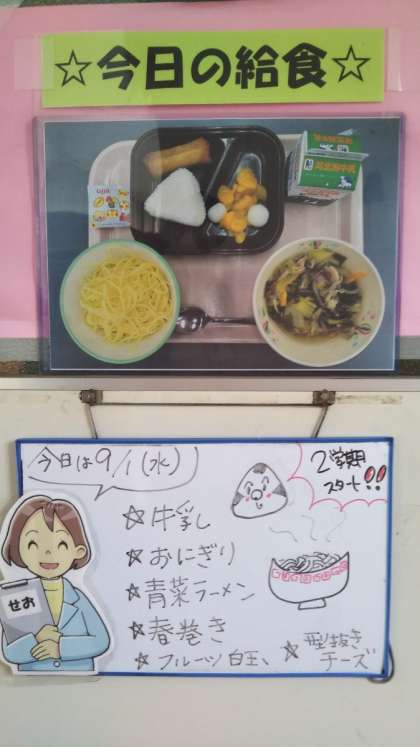 ☆今日の給食☆
今日は9/1(水)
2学期
スタート!!
☆牛乳
☆おにぎり
☆青菜ラーメン
☆春巻き
☆フルーツ白玉、
☆型抜き
チーズ
せお